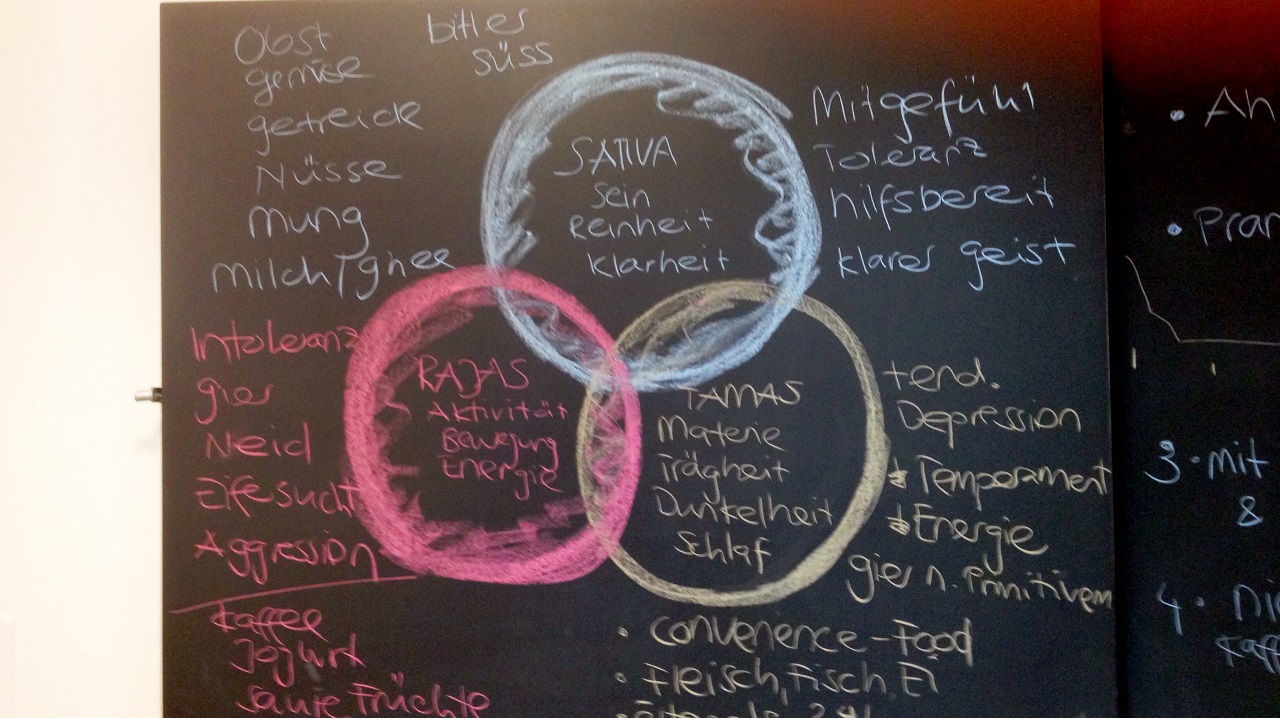 Obst
gemüse
getreide
Nüsse
mung
milch/ghee
bitter
süss
SATTVA
Sein
Reinheit
Klarheit
Mitgefühl
Toleranz
hilfsbereit
klarer geist
Intoleranz
gier
Neid
Eifersucht
Aggression
RAJAS
Aktivität
Bewegung
Energie
TAMAS
Materie
Trägheit
Dunkelheit
Schlaf
tend.
Depression
↓ Temperament
↓ Energie
gier n. Primitivem
Kaffee
Jogurt
saure Früchte
• convenience-Food
• Fleisch, Fisch, Ei
• Ah
• Pran
3. mit
&
4. ni
Kaff